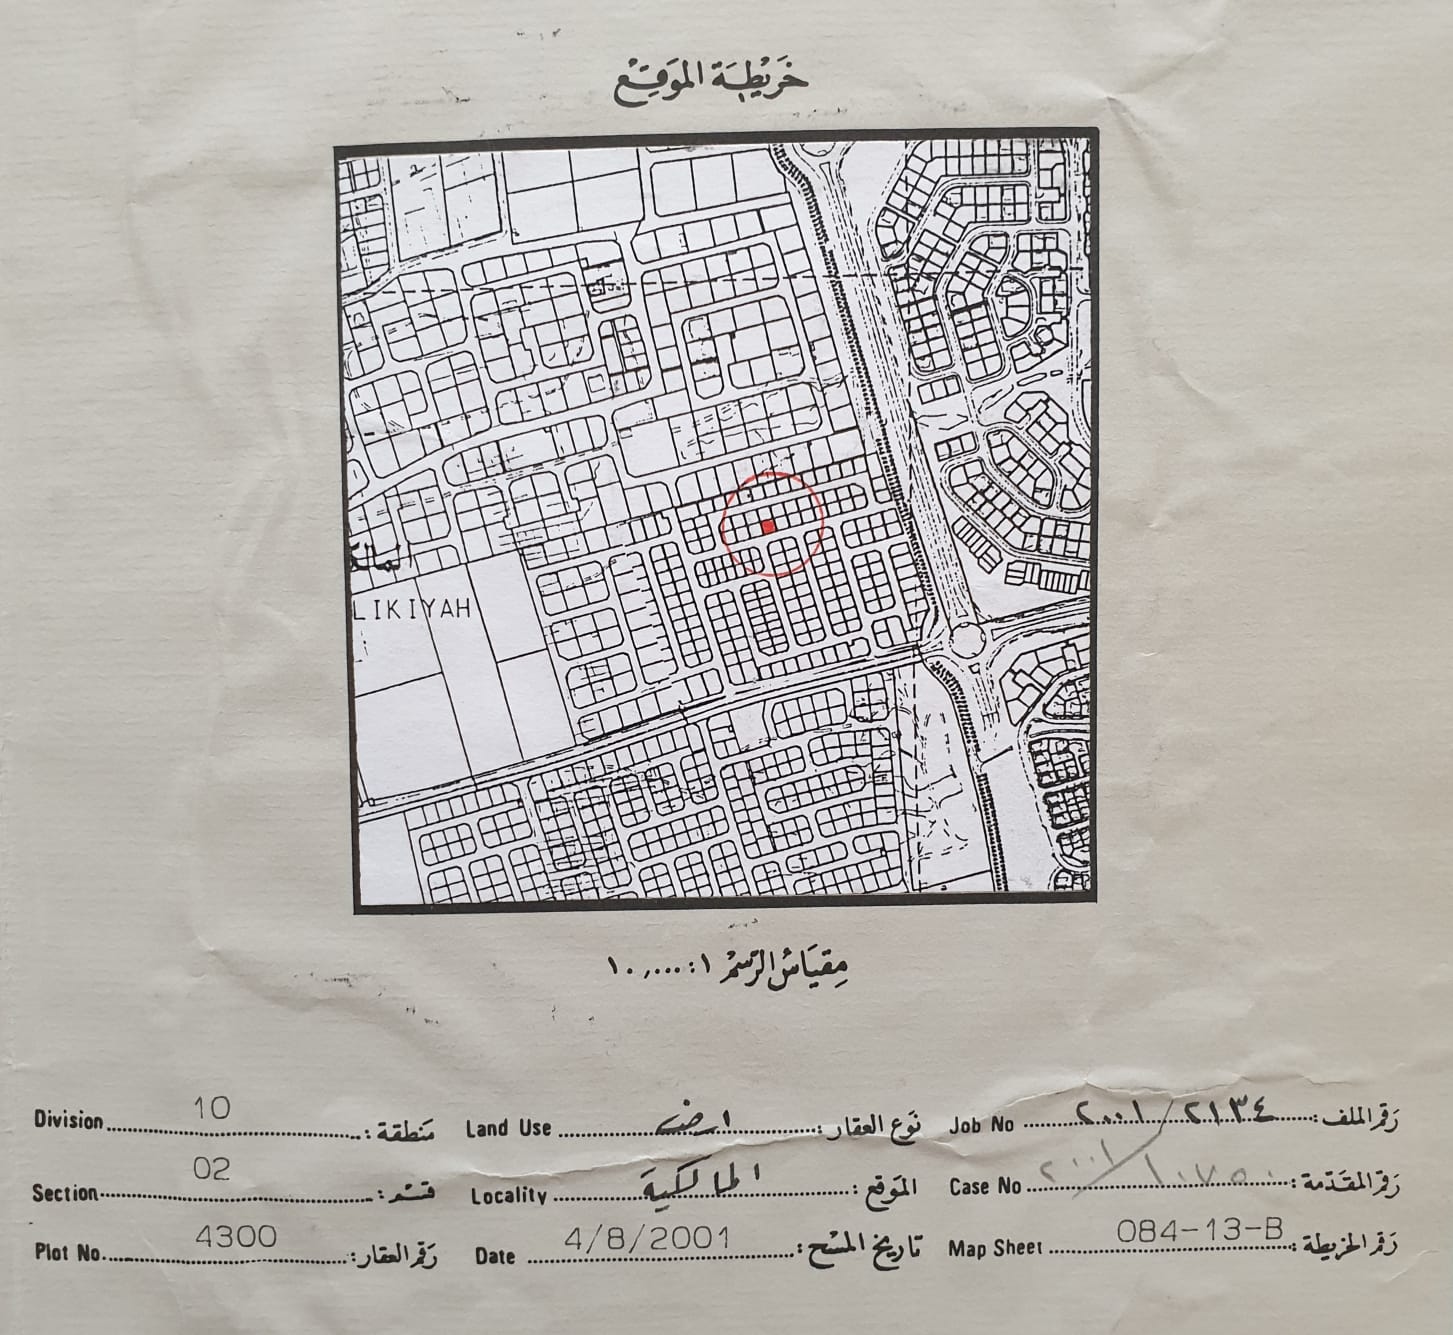 خريطة الموقع
المالك
LIKIYAH
مقياس الرسم ١:١٠,٠٠٠
Division 10 منطقة: Land Use ارض نوع العقار: Job No ٢٠٠١/٢١٣٤ رقم الملف:
Section 02 قسم: Locality المالكية الموقع: Case No ٢٠٠١/١٠٧٥٠ رقم المقدمة:
Plot No. 4300 رقم العقار: Date 4/8/2001 تاريخ المسح: Map Sheet 084-13-B رقم الخريطة: